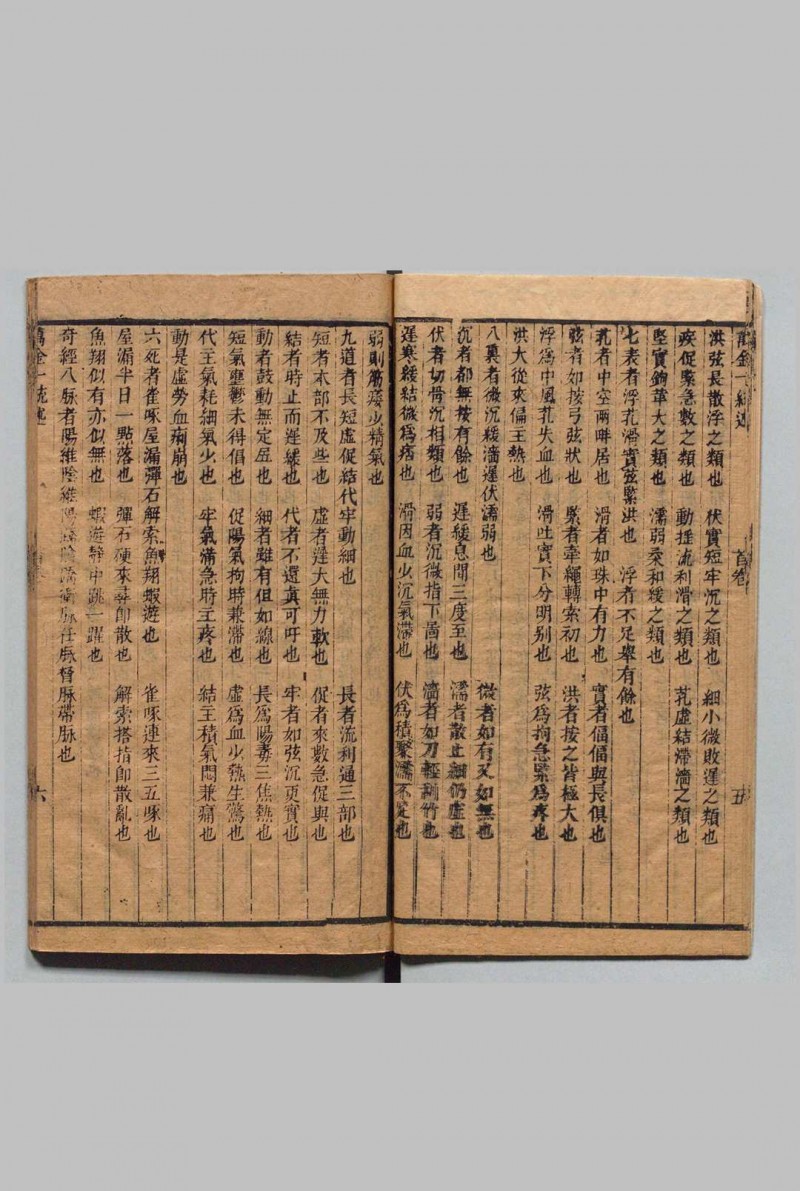 萬金一統述　首卷　五
洪弦長散浮之類也　伏實短牢沉之類也　細小微敗遲之類也
疾促緊急數之類也　動捶流利滑之類也　芤虛結滯濇之類也
堅實鉤革大之類也　濡弱柔和緩之類也
七表者浮芤滑實弦緊洪也　浮者不足舉有餘也
芤者中空兩畔居也　滑者如珠中有力也　實者偪偪與長俱也
弦者如按弓弦狀也　緊者牽繩轉索初也　洪者按之皆極大也
浮爲中風芤失血也　滑吐實下分明別也　弦爲拘急緊爲疼也
洪大從來偏主熱也
八裏者微沉緩濇遲伏濡弱也　微者如有又如無也
沉者都無按有餘也　遲緩息間三度至也　濡者散止細仍虛也
伏者切骨沉相類也　弱者沉微指下啚也　濇者如刀輕刮竹也
遲寒緩結微爲痞也　滑因血少沉氣滯也　伏爲積聚濡不足也
弱則筋痿少精氣也
九道者長短虛促結代牢動細也　長者流利通三部也
短者本部不及些也　虛者遲大無力軟也　促者來數急促與也
結者時止而遲緩也　代者不還真可吁也　牢者如弦沉更實也
動者鼓動無定㞐也　細者雖有但如線也　長爲陽毒三焦熱也
短氣壅鬱未得倡也　促陽氣拘時兼滯也　虛爲血少熱生驚也
代主氣耗細氣少也　牢氣滿急時主疼也　結主積氣悶兼痛也
動是虛勞血痢崩也
六死者雀啄屋漏彈石解索魚翔蝦遊也　雀啄連來三五啄也
屋漏半日一點落也　彈石硬來尋即散也　解索搭指即散亂也
魚翔似有亦似無也　蝦遊靜中跳一躍也
奇經八脉者陽維陰維陽蹻陰蹻衝脉任脉督脉帶脉也
萬金一統述　六